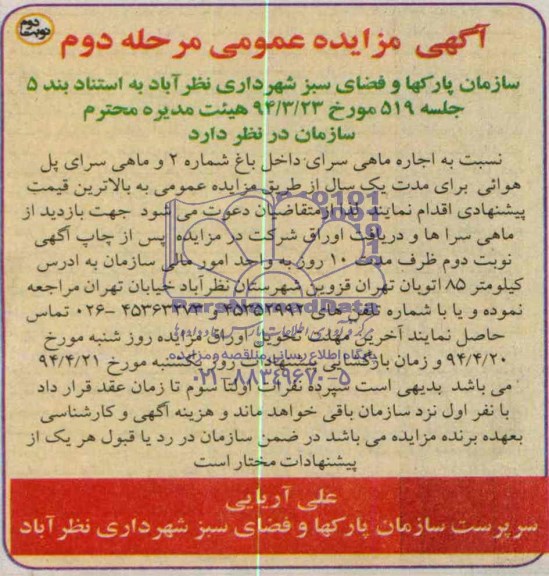 نوبت دوم
آگهی مزایده عمومی مرحله دوم
سازمان پارکها و فضای سبز شهرداری نظرآباد به استناد بند ۵
جلسه ۵۱۹ مورخ ۹۴/۳/۲۳ هیئت مدیره محترم
سازمان در نظر دارد
نسبت به اجاره ماهی سرای داخل باغ شماره ۲ و ماهی سرای پل
هوائی برای مدت یک سال از طریق مزایده عمومی به بالاترین قیمت
پیشنهادی اقدام نمایند لذا از متقاضیان دعوت می شود جهت بازدید از
ماهی سرا ها و دریافت اوراق شرکت در مزایده پس از چاپ آگهی
نوبت دوم ظرف مدت ۱۰ روز به واحد امور مالی سازمان به ادرس
کیلومتر ۸۵ اتوبان تهران قزوین شهرستان نظرآباد خیابان تهران مراجعه
نموده و یا با شماره تلفن های و ۰۲۶ تماس
حاصل نمایند آخرین مهلت تحویل اوراق مزایده روز شنبه مورخ
۹۴/۴/۲۰ و زمان بازگشایی پیشنهادات روز یکشنبه مورخ ۹۴/۴/۲۱
می باشد بدیهی است سپرده نفرات اولتا سوم تا زمان عقد قرار داد
با نفر اول نزد سازمان باقی خواهد ماند و هزینه آگهی و کارشناسی
بعهده برنده مزایده می باشد در ضمن سازمان در رد یا قبول هر یک از
پیشنهادات مختار است
علی آریایی
سرپرست سازمان پارکها و فضای سبز شهرداری نظرآباد
ParsNamadData
پایگاه اطلاع رسانی مناقصه و مزایده
۰۲۱-۸۸۳۴۹۶۷۰-۵